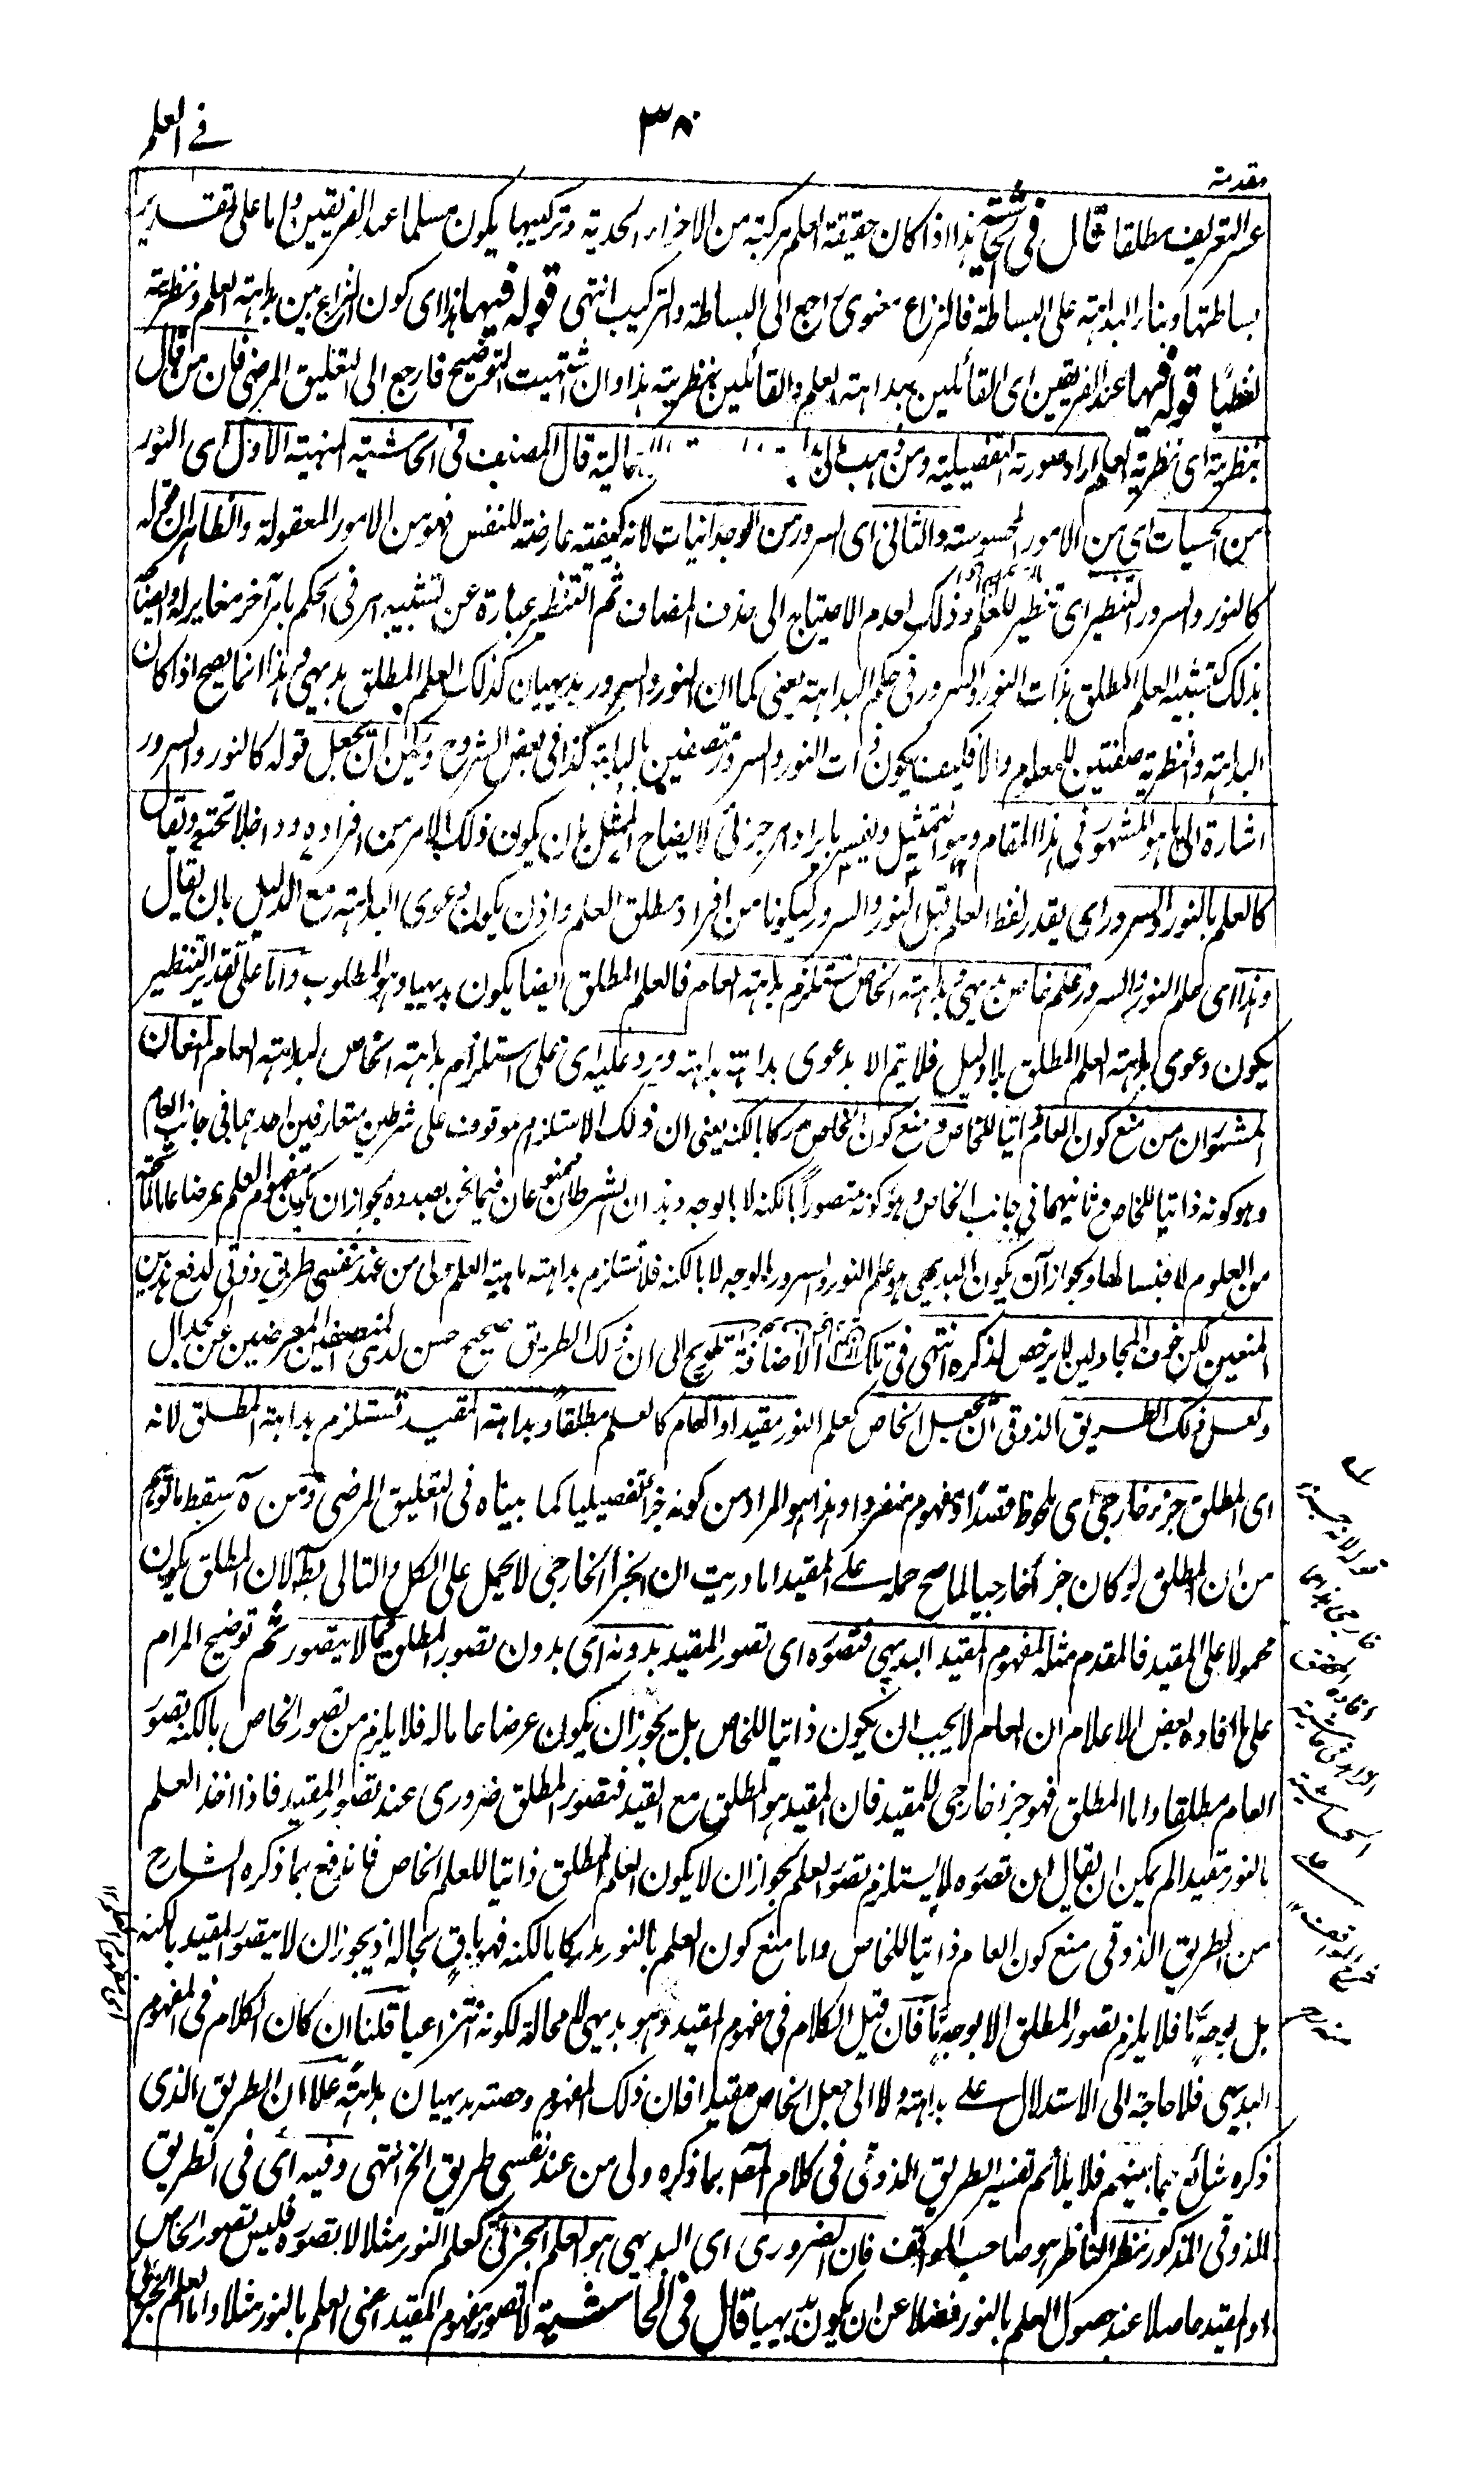 في العلم
٣٨
مقدمة
عسر التعريف مطلقا قال في الحاشية هذا اذا كان حقيقة العلم مركبة من الاجزاء الحدية وتركيبها يكون مسلما عند الفريقين واما على تقدير
بساطتها وبناء البداهة على البساطة فالنزاع معنوي راجع الى البساطة والتركيب انتهى قوله فيها هذا اي كون النزاع بين بداهة العلم ونظريته
لفظيا قوله فيها عند الفريقين اي القائلين ببداهة العلم والقائلين بنظريته هذا وان اشتهيت التوضيح فارجع الى التعليق المرضي فان من قال
بنظريته اي نظرية العلم اراد صورته التفصيلية ومن ذهب الى قال المصنف في الحاشية المنهية الاول اي النور
من الحسيات اي من الامور المحسوسة والثاني اي السرور من الوجدانيات لانه كيفية عارضة للنفس فهو من الامور المعقولة والظاهر ان قوله
كالنور والسرور التنظير اي تنظير للعلم وذلك لعدم الاحتياج الى حذف المضاف ثم التنظير عبارة عن تشبيه امر في الحكم بامر آخر مغاير له وايضا
بذلك كتشبيه العلم المطلق بذات النور والسرور في حكم البداهة يعني كما ان النور والسرور بديهيان كذلك العلم المطلق بديهي وهذا انما يصح اذا كان
البداهة والنظرية صفتين للمعلوم والا فكيف يكون ذات النور والسرور متصفين بالبداهة كذا في بعض الشروح ويمكن ان يجعل قوله كالنور والسرور
اشارة الى ما هو المشهور في هذا المقام وهو التمثيل ويفسر بايراد امر جزئي لايضاح الممثل بان يكون ذلك الامر من افراده وداخلا تحته ويقال
كالعلم بالنور والسرور اي يقدر لفظ العلم قبل النور والسرور ليكونا من افراد مطلق العلم واذن يكون دعوى البداهة مع الدليل بان يقال
وهذا اي علم النور والسرور علم خاص بديهي وبداهة الخاص تستلزم بداهة العام فالعلم المطلق ايضا يكون بديهيا وهو المطلوب واما على تقدير التنظير
يكون دعوى بداهة العلم المطلق بلا دليل فلا يتم الا بدعوى بداهة بداهته ويرد عليه اي على استلزام بداهة الخاص لبداهة العام المنعان
المشهوران من منع كون العام ذاتيا للخاص ومنع كون الخاص مدركا بالكنه يعني ان ذلك الاستلزام موقوف على شرطين متعارفين احدهما في جانب العام
وهو كونه ذاتيا للخاص وثانيهما في جانب الخاص وهو كونه متصورا بالكنه لا بالوجه وهذان الشرطان ممنوعان فيما نحن بصدده بجواز ان يكون مفهوم العلم عرضا عاما لما تحته
من العلوم لا جنسا لها وبجواز ان يكون البديهي هو علم النور والسرور بالوجه لا بالكنه فلا تستلزم بداهته ماهية العلم ولي من عند نفسي طريق ذوقي لدفع هذين
المنعين لكن خوف المجادلين لا يرخص لذكره انتهى في تلك الاضافة تلويح الى ان ذلك الطريق صحيح حسن لدى المنصفين المعرضين عن الجدال
ولعل ذلك الطريق الذوقي ان يجعل الخاص كعلم النور مقيدا والعام كالعلم مطلقا وبداهة المقيد تستلزم بداهة المطلق لانه
اي المطلق جزء خارجي اي ملحوظ مقيدا ومفهوم منفردا وهذا هو المراد من كونه جزأ تفصيليا كما بيناه في التعليق المرضي ومن ه سقط ما توهم
من ان المطلق لو كان جزأ خارجيا لما صح حمله على المقيد اما دريت ان الجزأ الخارجي لا يحمل على الكل والتالي بط لان المطلق يكون
محمولا على المقيد فالمقدم مثله لمفهوم المقيد البديهي فتصوره اي تصور المقيد بدونه اي بدون تصور المطلق مما لا يتصور ثم توضيح المرام
على ما افاده بعض الاعلام ان العام لا يجب ان يكون ذاتيا للخاص بل يجوز ان يكون عرضا عاما له فلا يلزم من تصور الخاص بالكنه تصور
العام مطلقا واما المطلق فهو جزء خارجي للمقيد فان المقيد هو المطلق مع القيد فتصور المطلق ضروري عند تصور المقيد فاذا اخذ العلم
بالنور مقيدا لم يمكن ان يقال ان تصوره لا يستلزم تصور العلم بجواز ان لا يكون العلم المطلق ذاتيا للعلم الخاص فاندفع بما ذكره الشارح
من الطريق الذوقي منع كون العام ذاتيا للخاص واما منع كون العلم بالنور مدركا بالكنه فهو باق بحاله اذ يجوز ان لا يتصور المقيد بالكنه
بل بوجه ما فلا يلزم تصور المطلق الا بوجه ما فان قيل الكلام في مفهوم المقيد وهو بديهي لا محالة لكونه انتزاعيا قلنا ان كان الكلام في المفهوم
البديهي فلا حاجة الى الاستدلال على بداهته ولا الى جعل الخاص مقيدا فان ذلك المفهوم وحصته بديهيان بداهة علا ان الطريق الذي
ذكره شائع فيما بينهم فلا يلائم تفسير الطريق الذوقي في كلام المص بما ذكره ولي من عند نفسي طريق الخ انتهى وفيه اي في الطريق
الذوقي المذكور نظر الناظر هو صاحب المواقف فان الضروري اي البديهي هو العلم الجزئي كعلم النور مثلا لا تصوره فليس تصور الخاص
او المقيد حاصلا عند حصول العلم بالنور فضلا عن ان يكون بديهيا قال في الحاشية لا تصور مفهوم المقيد اعني العلم بالنور مثلا واما العلم الجزئي